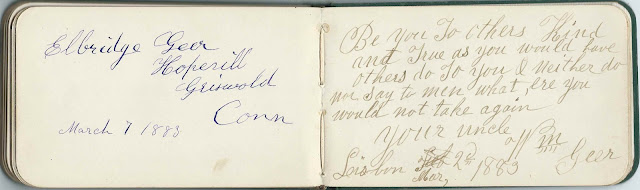 Elbridge Geer
Hopevill
Griswold
Conn
March 7 1883
Be you To others Kind
and True as you would have
others do To you & Neither do
nor say to men what, ere you
would not take again
Your uncle Wm Geer
Lisbon Feb 2d 1883
Mar,